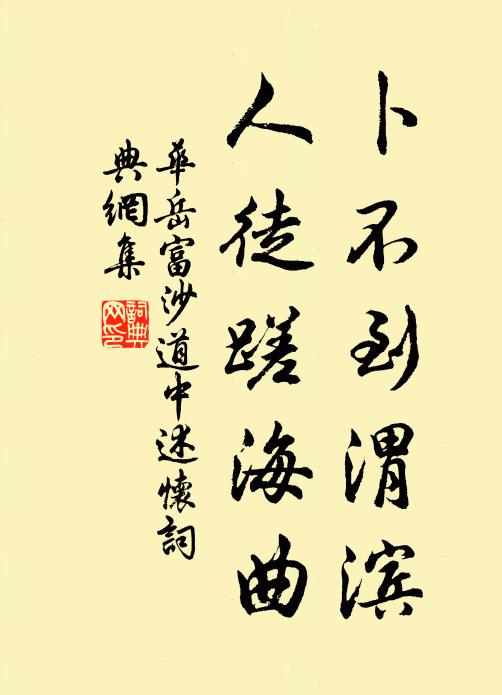 卜不到渭滨
人徒蹉海曲
華岳富沙道中述懷詞
典網集
詞典
网印